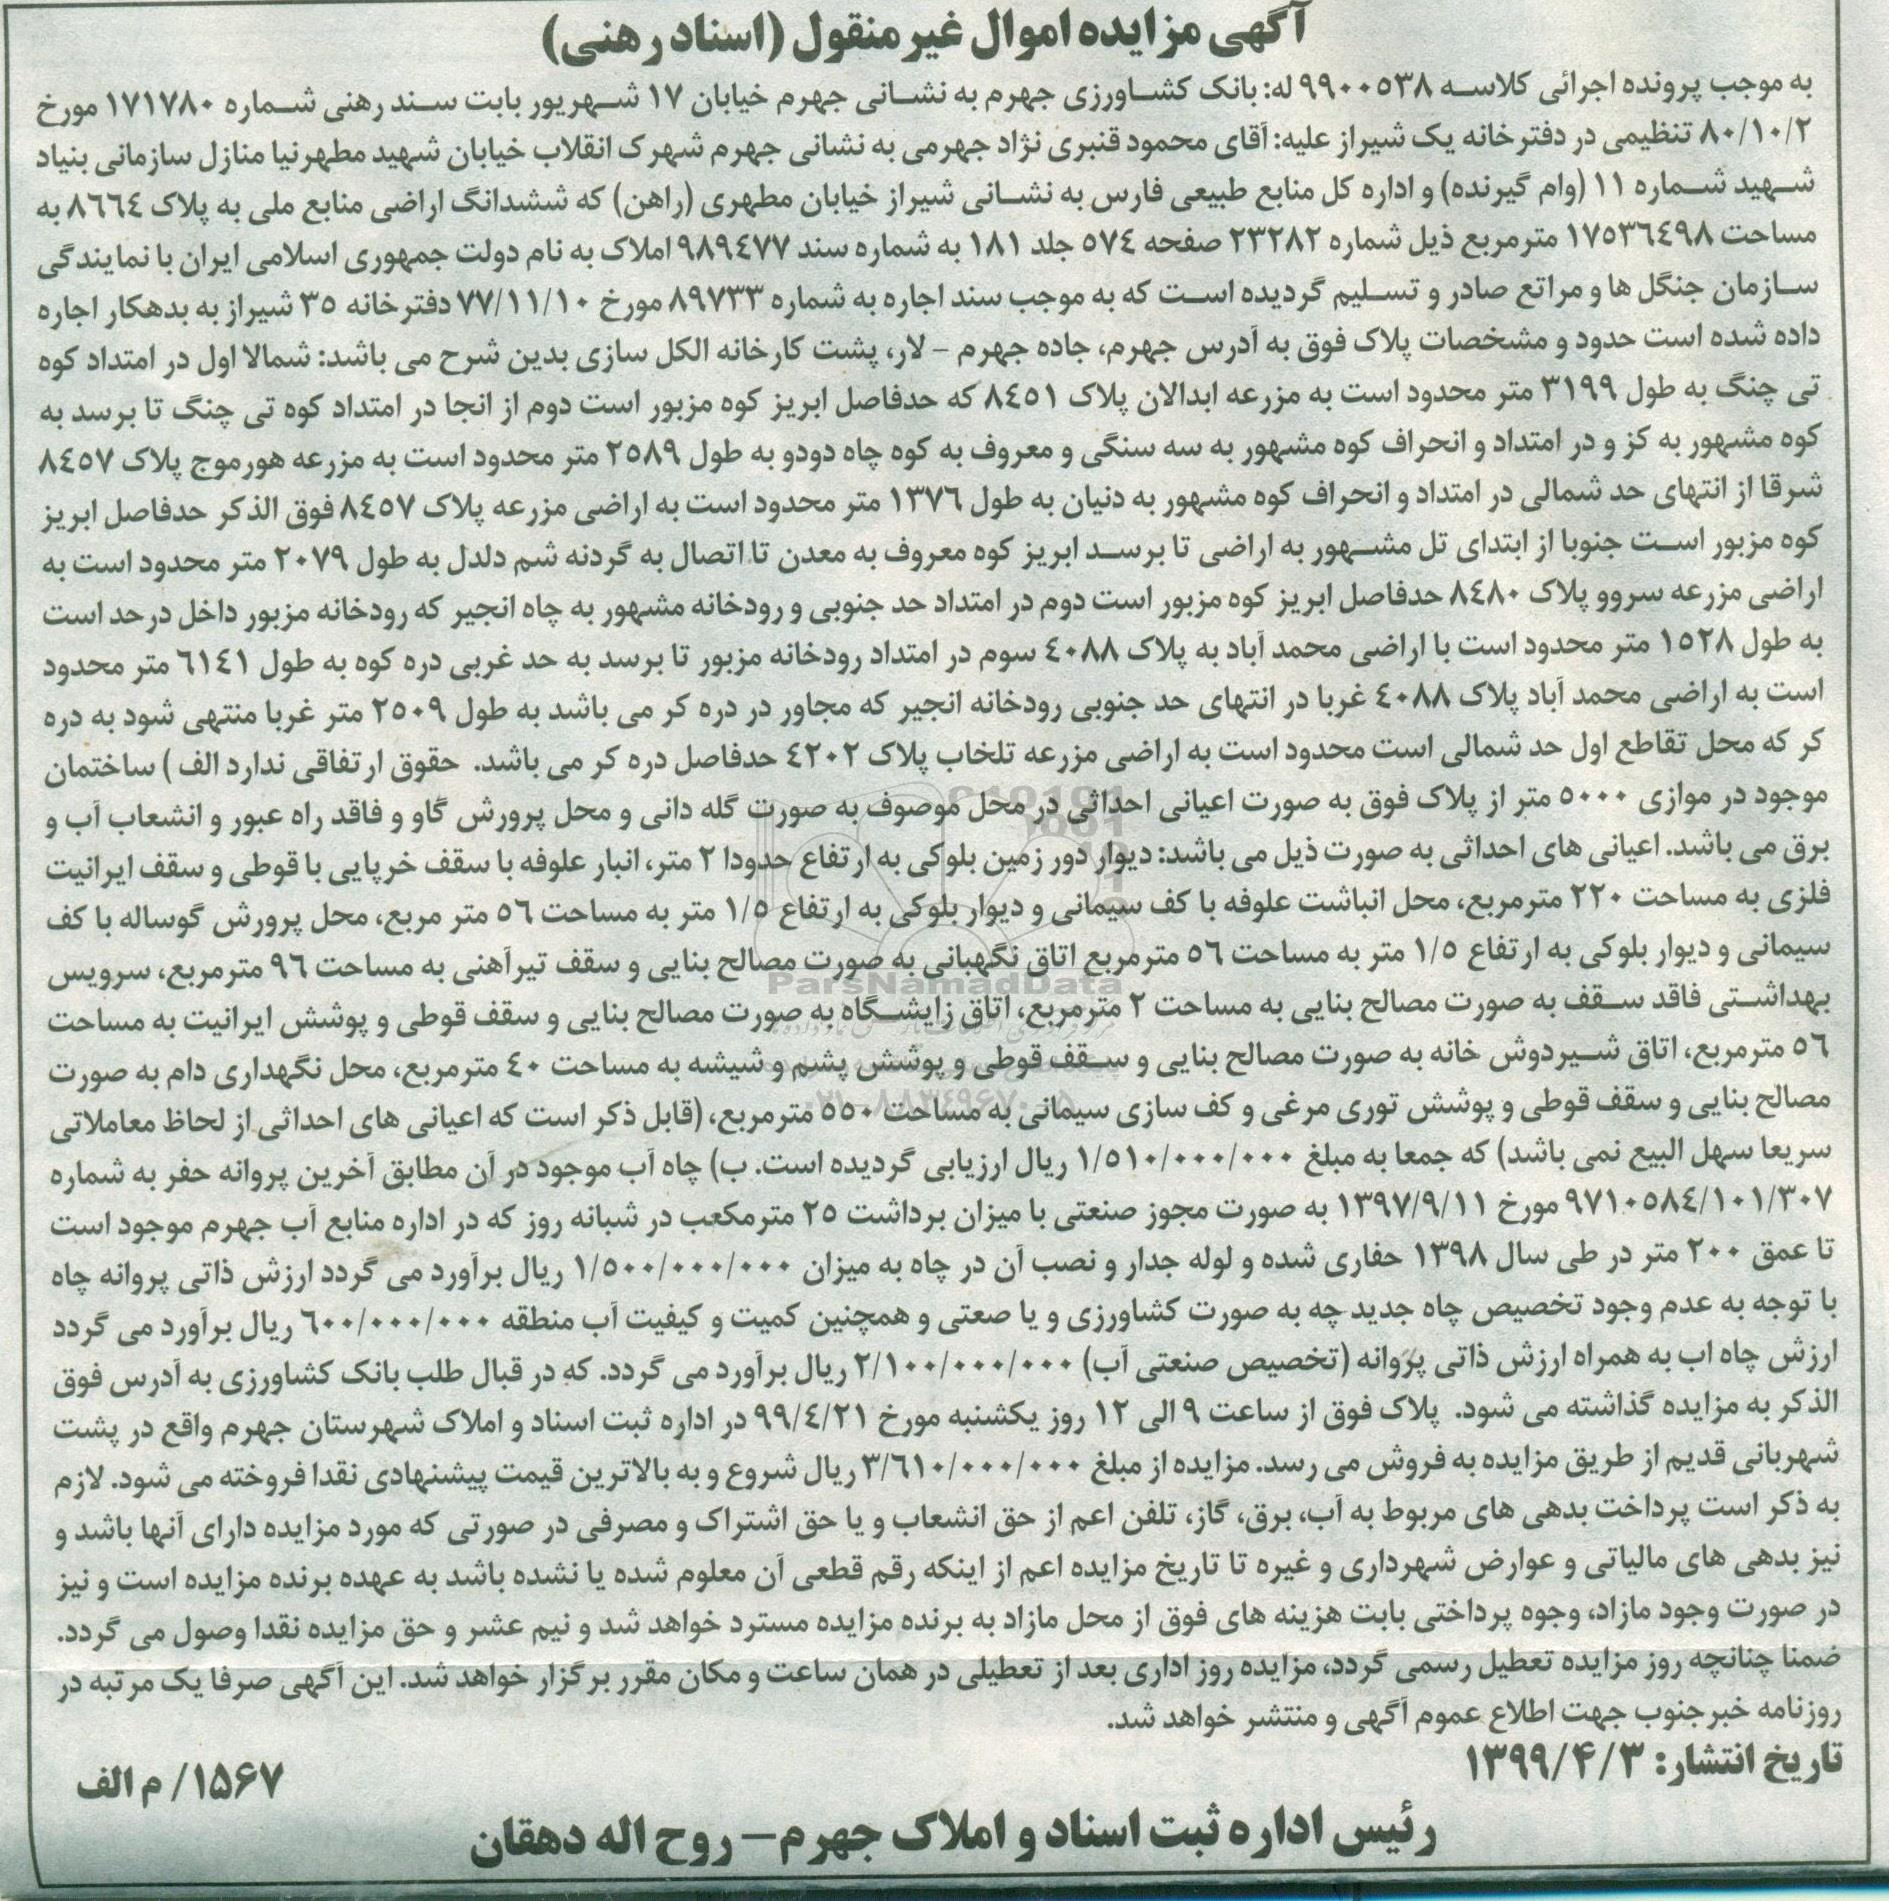 آگهی مزایده اموال غیر منقول (اسناد رهنی)
به موجب پرونده اجرائی کلاسه ۹۹۰۰۵۳۸ له: بانک کشاورزی جهرم به نشانی جهرم خیابان ۱۷ شهریور بابت سند رهنی شماره ۱۷۱۷۸۰ مورخ
۸۰/۱۰/۲ تنظیمی در دفترخانه یک شیراز علیه: آقای محمود قنبری نژاد جهرمی به نشانی جهرم شهرک انقلاب خیابان شهید مطهرنیا منازل سازمانی بنیاد
شهید شماره ۱۱ (وام گیرنده) و اداره کل منابع طبیعی فارس به نشانی شیراز خیابان مطهری (راهن) که ششدانگ اراضی منابع ملی به پلاک ۸۶۶۴ به
مساحت ۱۷۵۳۶۴۹۸ مترمربع ذیل شماره ۲۳۲۸۲ صفحه ۵۷۴ جلد ۱۸۱ به شماره سند ۹۸۹۴۷۷ املاک به نام دولت جمهوری اسلامی ایران با نمایندگی
سازمان جنگل ها و مراتع صادر و تسلیم گردیده است که به موجب سند اجاره به شماره ۸۹۷۳۳ مورخ ۷۷/۱۱/۱۰ دفترخانه ۳۵ شیراز به بدهکار اجاره
داده شده است حدود و مشخصات پلاک فوق به آدرس جهرم، جاده جهرم – لار، پشت کارخانه الکل سازی بدین شرح می باشد: شمالا اول در امتداد کوه
تی چنگ به طول ۳۱۹۹ متر محدود است به مزرعه ابدالان پلاک ۸۴۵۱ که حدفاصل ابریز کوه مزبور است دوم از انجا در امتداد کوه تی چنگ تا برسد به
کوه مشهور به کز و در امتداد و انحراف کوه مشهور به سه سنگی و معروف به کوه چاه دودو به طول ۲۵۸۹ متر محدود است به مزرعه هورموج پلاک ۸۴۵۷
شرقا از انتهای حد شمالی در امتداد و انحراف کوه مشهور به دنیان به طول ۱۳۷۶ متر محدود است به اراضی مزرعه پلاک ۸۴۵۷ فوق الذکر حدفاصل ابریز
کوه مزبور است جنوبا از ابتدای تل مشهور به اراضی تا برسد ابریز کوه معروف به معدن تا اتصال به گردنه شم دلدل به طول ۲۰۷۹ متر محدود است به
اراضی مزرعه سروو پلاک ۸۴۸۰ حدفاصل ابریز کوه مزبور است دوم در امتداد حد جنوبی و رودخانه مشهور به چاه انجیر که رودخانه مزبور داخل درحد است
به طول ۱۵۲۸ متر محدود است با اراضی محمد آباد به پلاک ۴۰۸۸ سوم در امتداد رودخانه مزبور تا برسد به حد غربی دره کوه به طول ۶۱۴۱ متر محدود
است به اراضی محمد آباد پلاک ۴۰۸۸ غربا در انتهای حد جنوبی رودخانه انجیر که مجاور در دره کر می باشد به طول ۲۵۰۹ متر غربا منتهی شود به دره
کر که محل تقاطع اول حد شمالی است محدود است به اراضی مزرعه تلخاب پلاک ۴۲۰۲ حدفاصل دره کر می باشد. حقوق ارتفاقی ندارد الف ) ساختمان
موجود در موازی ۵۰۰۰ متر از پلاک فوق به صورت اعیانی احداثی در محل موصوف به صورت گله دانی و محل پرورش گاو و فاقد راه عبور و انشعاب آب و
برق می باشد. اعیانی های احداثی به صورت ذیل می باشد: دیوار دور زمین بلوکی به ارتفاع حدودا ۲ متر، انبار علوفه با سقف خرپایی با قوطی و سقف ایرانیت
فلزی به مساحت ۲۲۰ مترمربع، محل انباشت علوفه با کف سیمانی و دیوار بلوکی به ارتفاع ۱/۵ متر به مساحت ۵۶ متر مربع، محل پرورش گوساله با کف
سیمانی و دیوار بلوکی به ارتفاع ۱/۵ متر به مساحت ۵۶ مترمربع اتاق نگهبانی به صورت مصالح بنایی و سقف تیرآهنی به مساحت ۹۶ مترمربع، سرویس
بهداشتی فاقد سقف به صورت مصالح بنایی به مساحت ۲ مترمربع، اتاق زایشگاه به صورت مصالح بنایی و سقف قوطی و پوشش ایرانیت به مساحت
۵۶ مترمربع، اتاق شیردوش خانه به صورت مصالح بنایی و سقف قوطی و پوشش پشم و شیشه به مساحت ۴۰ مترمربع، محل نگهداری دام به صورت
مصالح بنایی و سقف قوطی و پوشش توری مرغی و کف سازی سیمانی به مساحت ۵۵۰ مترمربع، (قابل ذکر است که اعیانی های احداثی از لحاظ معاملاتی
سریعا سهل البیع نمی باشد) که جمعا به مبلغ ۱/۵۱۰/۰۰۰/۰۰۰ ریال ارزیابی گردیده است. ب) چاه آب موجود در آن مطابق آخرین پروانه حفر به شماره
۹۷۱۰۵۸۴/۱۰۱/۳۰۷ مورخ ۱۳۹۷/۹/۱۱ به صورت مجوز صنعتی با میزان برداشت ۲۵ مترمکعب در شبانه روز که در اداره منابع آب جهرم موجود است
تا عمق ۲۰۰ متر در طی سال ۱۳۹۸ حفاری شده و لوله جدار و نصب آن در چاه به میزان ۱/۵۰۰/۰۰۰/۰۰۰ ریال برآورد می گردد ارزش ذاتی پروانه چاه
با توجه به عدم وجود تخصیص چاه جدید چه به صورت کشاورزی و یا صعتی و همچنین کمیت و کیفیت آب منطقه ۶۰۰/۰۰۰/۰۰۰ ریال برآورد می گردد
ارزش چاه اب به همراه ارزش ذاتی پروانه (تخصیص صنعتی آب) ۲/۱۰۰/۰۰۰/۰۰۰ ریال برآورد می گردد. که در قبال طلب بانک کشاورزی به آدرس فوق
الذکر به مزایده گذاشته می شود. پلاک فوق از ساعت ۹ الی ۱۲ روز یکشنبه مورخ ۹۹/۴/۲۱ در اداره ثبت اسناد و املاک شهرستان جهرم واقع در پشت
شهربانی قدیم از طریق مزایده به فروش می رسد. مزایده از مبلغ ۳/۶۱۰/۰۰۰/۰۰۰ ریال شروع و به بالاترین قیمت پیشنهادی نقدا فروخته می شود. لازم
به ذکر است پرداخت بدهی های مربوط به آب، برق، گاز، تلفن اعم از حق انشعاب و یا حق اشتراک و مصرفی در صورتی که مورد مزایده دارای آنها باشد و
نیز بدهی های مالیاتی و عوارض شهرداری و غیره تا تاریخ مزایده اعم از اینکه رقم قطعی آن معلوم شده یا نشده باشد به عهده برنده مزایده است و نیز
در صورت وجود مازاد، وجوه پرداختی بابت هزینه های فوق از محل مازاد به برنده مزایده مسترد خواهد شد و نیم عشر و حق مزایده نقدا وصول می گردد.
ضمنا چنانچه روز مزایده تعطیل رسمی گردد، مزایده روز اداری بعد از تعطیلی در همان ساعت و مکان مقرر برگزار خواهد شد. این آگهی صرفا یک مرتبه در
روزنامه خبرجنوب جهت اطلاع عموم آگهی و منتشر خواهد شد.
تاریخ انتشار: ۱۳۹۹/۴/۳
۱۵۶۷/ م الف
رئیس اداره ثبت اسناد و املاک جهرم – روح اله دهقان
ParsNamadData